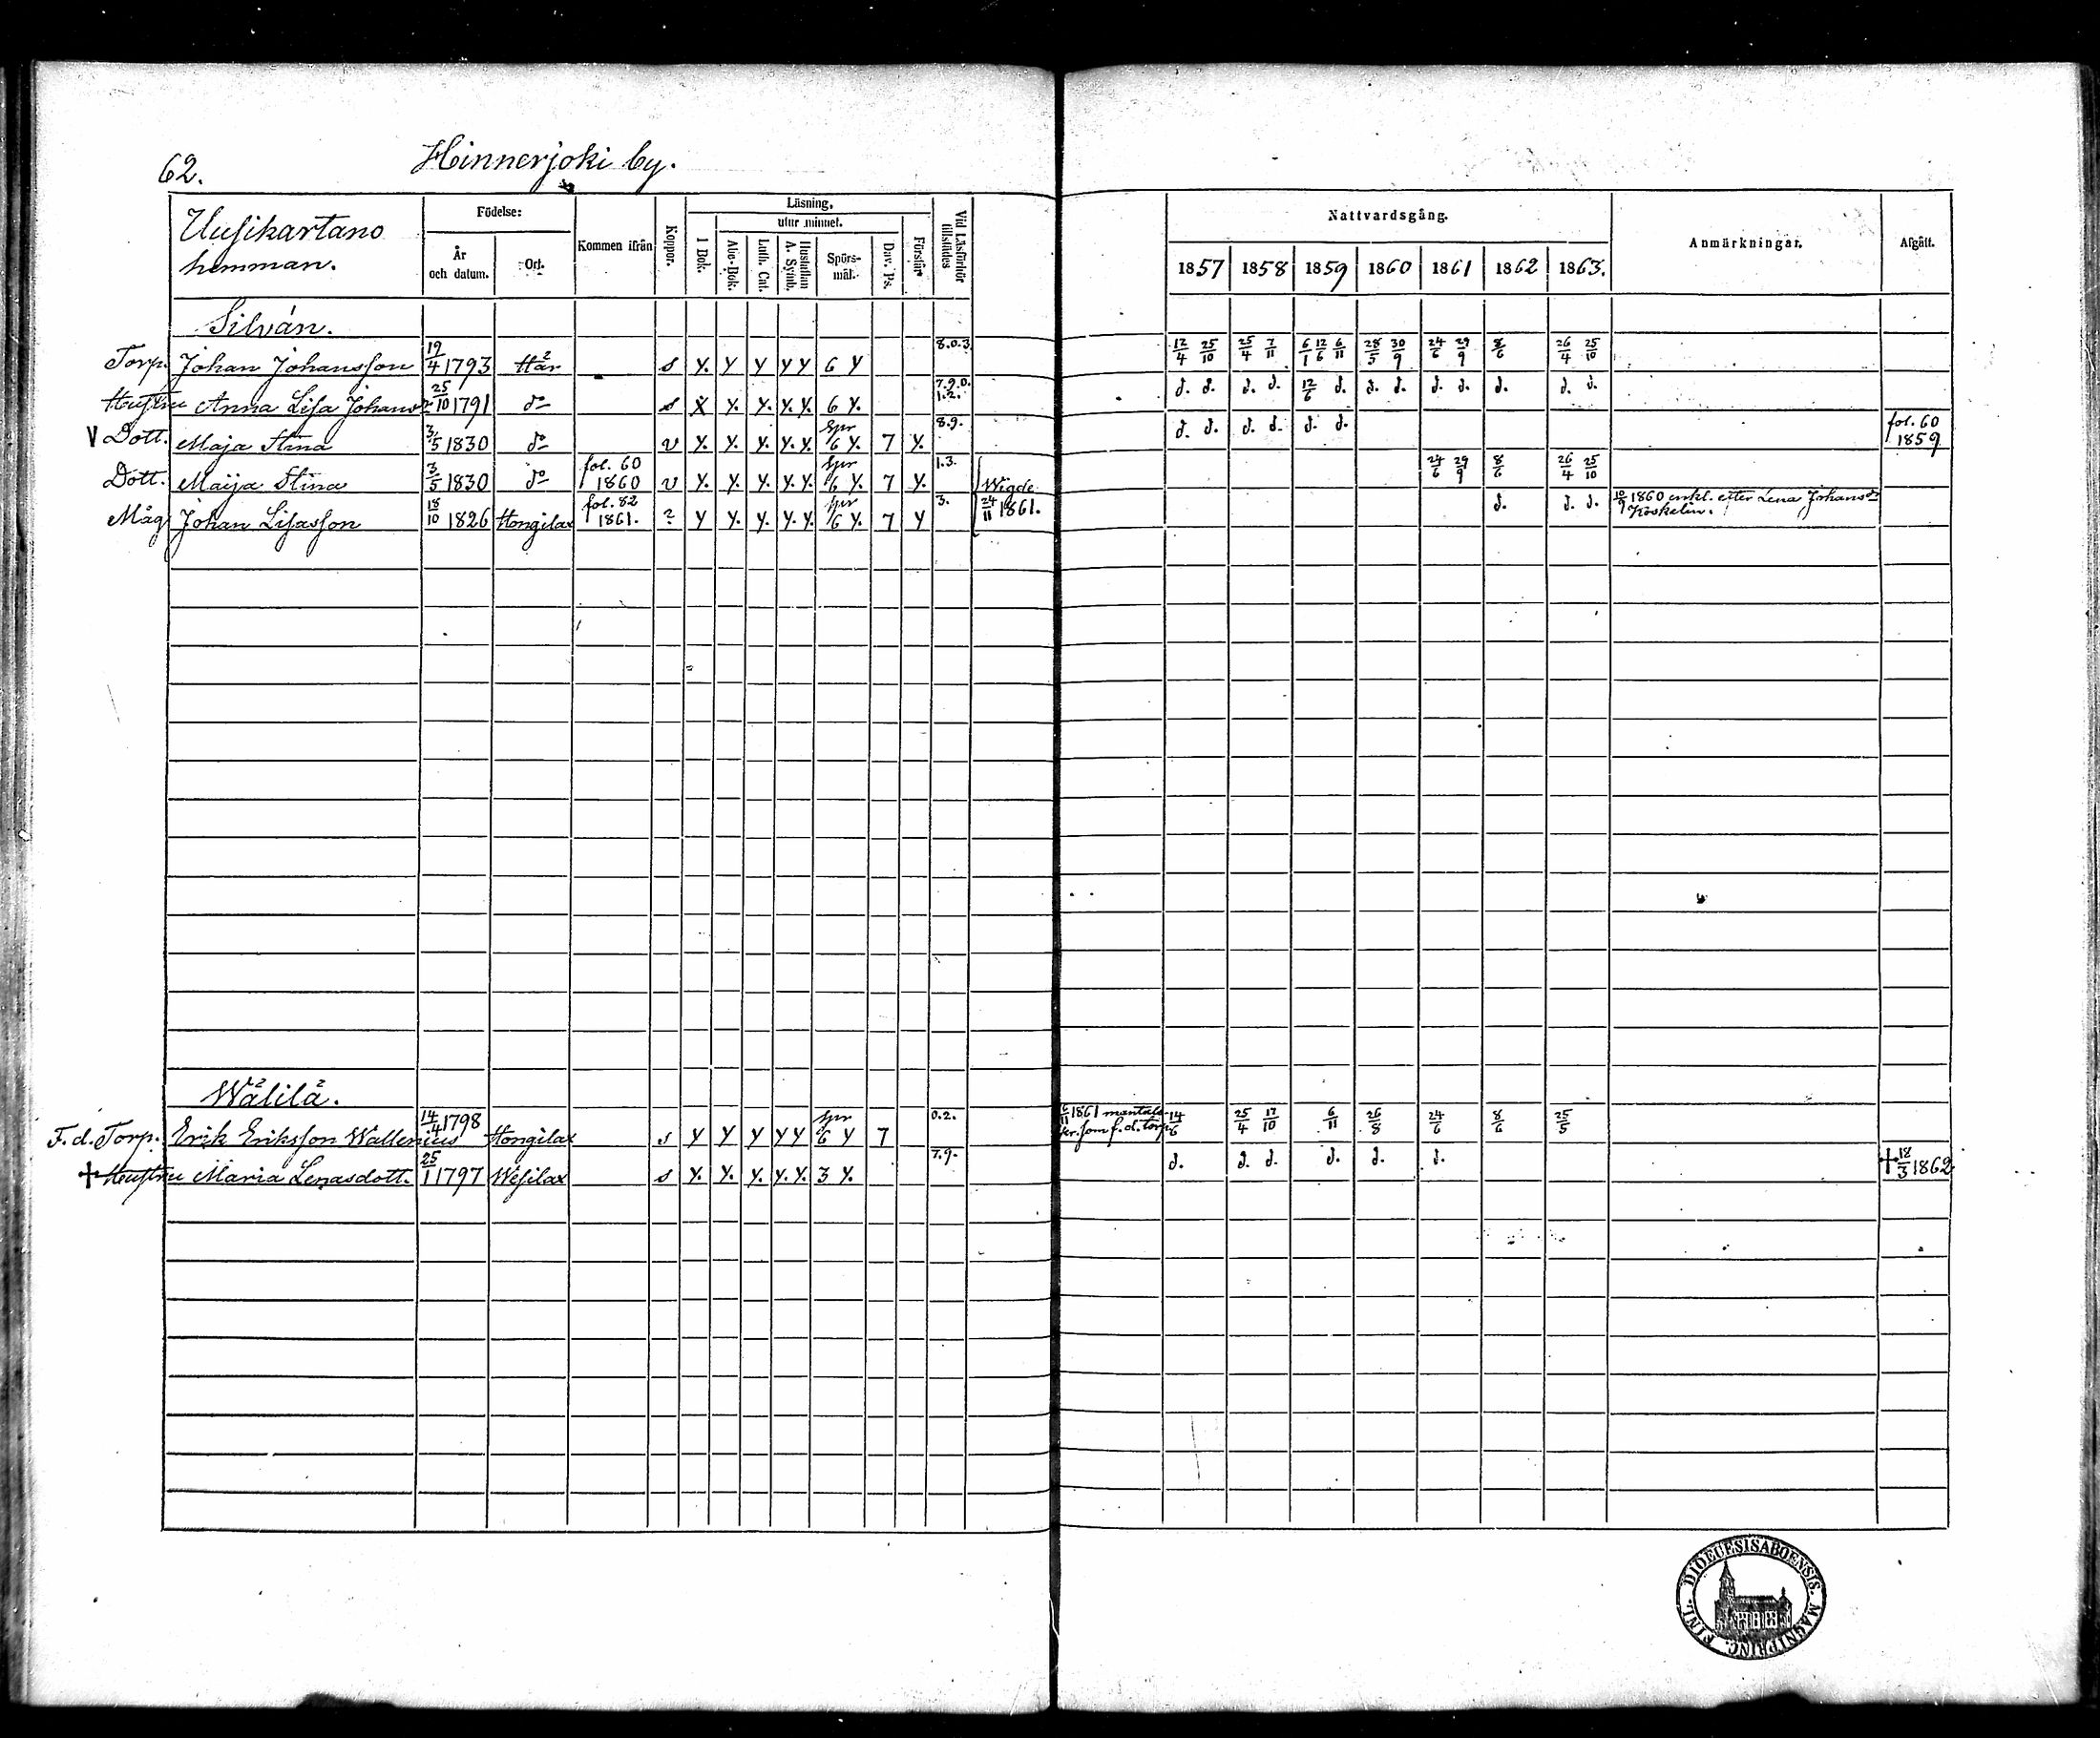 62. Hinnerjoki by.
Uusikartano hemman.
Födelse:
År och datum.
Ort.
Kommen ifrån
Koppor.
Läsning,
utur minnet.
I Bok.
Abc-Bok.
Luth. Cat.
Hustaflan A. Symb.
Spörs-mål.
Dav. Ps.
Förstår
Vid Läsförhör tillstädes
Nattvardsgång.
1857 1858 1859 1860 1861 1862 1863.
Anmärkningar.
Afgått.
Silván.
Torp. Johan Johansson 19/4 1793 Här s y. y y y y 6 y 8.0.3. 12/4 25/10 25/4 7/11 6/1 12/6 6/11 28/5 30/9 24/6 29/9 8/6 26/4 25/10
Hustru Anna Lisa Johansdr 25/10 1791 do s y. y. y. y. y. 6 y. 7.9.0. 1.2. d. d. d. d. 12/6 d. d. d. d. d. d. d. d.
V Dott. Maja Stina 3/5 1830 do v y. y. y. y. y. spr 6 y. 7 y. 8.9. d. d. d. d. d. d. fol. 60 1859
Dott. Maija Stina 3/5 1830 do fol. 60 1860 v y. y. y. y. y. spr 6 y. 7 y. 1.3. Wigde 24/6 29/9 8/6 26/4 25/10
Måg Johan Lisasson 18/10 1826 Hongilax fol. 82 1861. ? y y. y. y. y. spr 6 y. 7 y 3. 24/11 1861. d. d. d. 10/9 1860 enkl. efter Lena Johansdr
Koskelin.
Wälilä.
F. d. Torp. Erik Eriksson Wallenius 14/4 1798 Hongilax s y y y y y spr 6 y 7 0.2. 1861 mantals- 14/6 25/4 17/10 6/11 26/8 24/6 8/6 25/5
som f. d. torp.
† Hustru Maria Lenasdott. 25/1 1797 Wesilax s y. y. y. y. y. 3 y. 7.9. d. d. d. d. d. d. † 18/3 1862
DIOECESIS ABOENSIS. MAGNI PRINC. FINL.